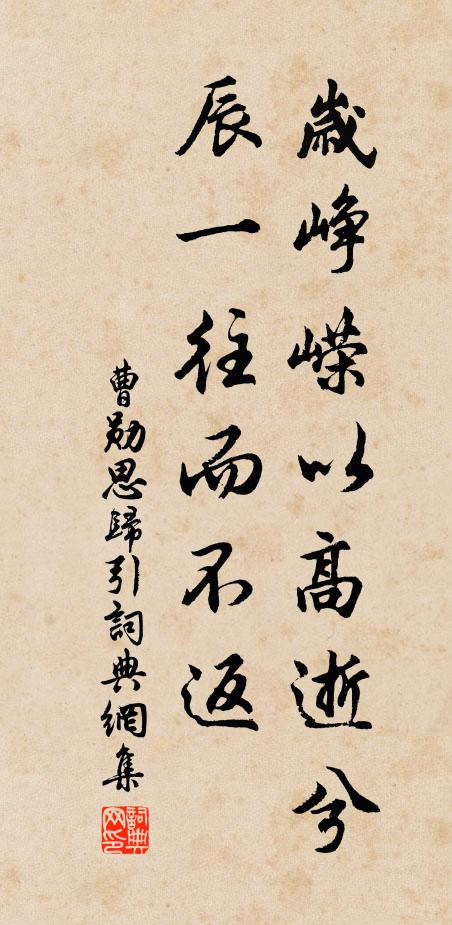 歲峥嶸以高逝兮
辰一往而不返
曹勛思歸引詞典網集
詞典网印